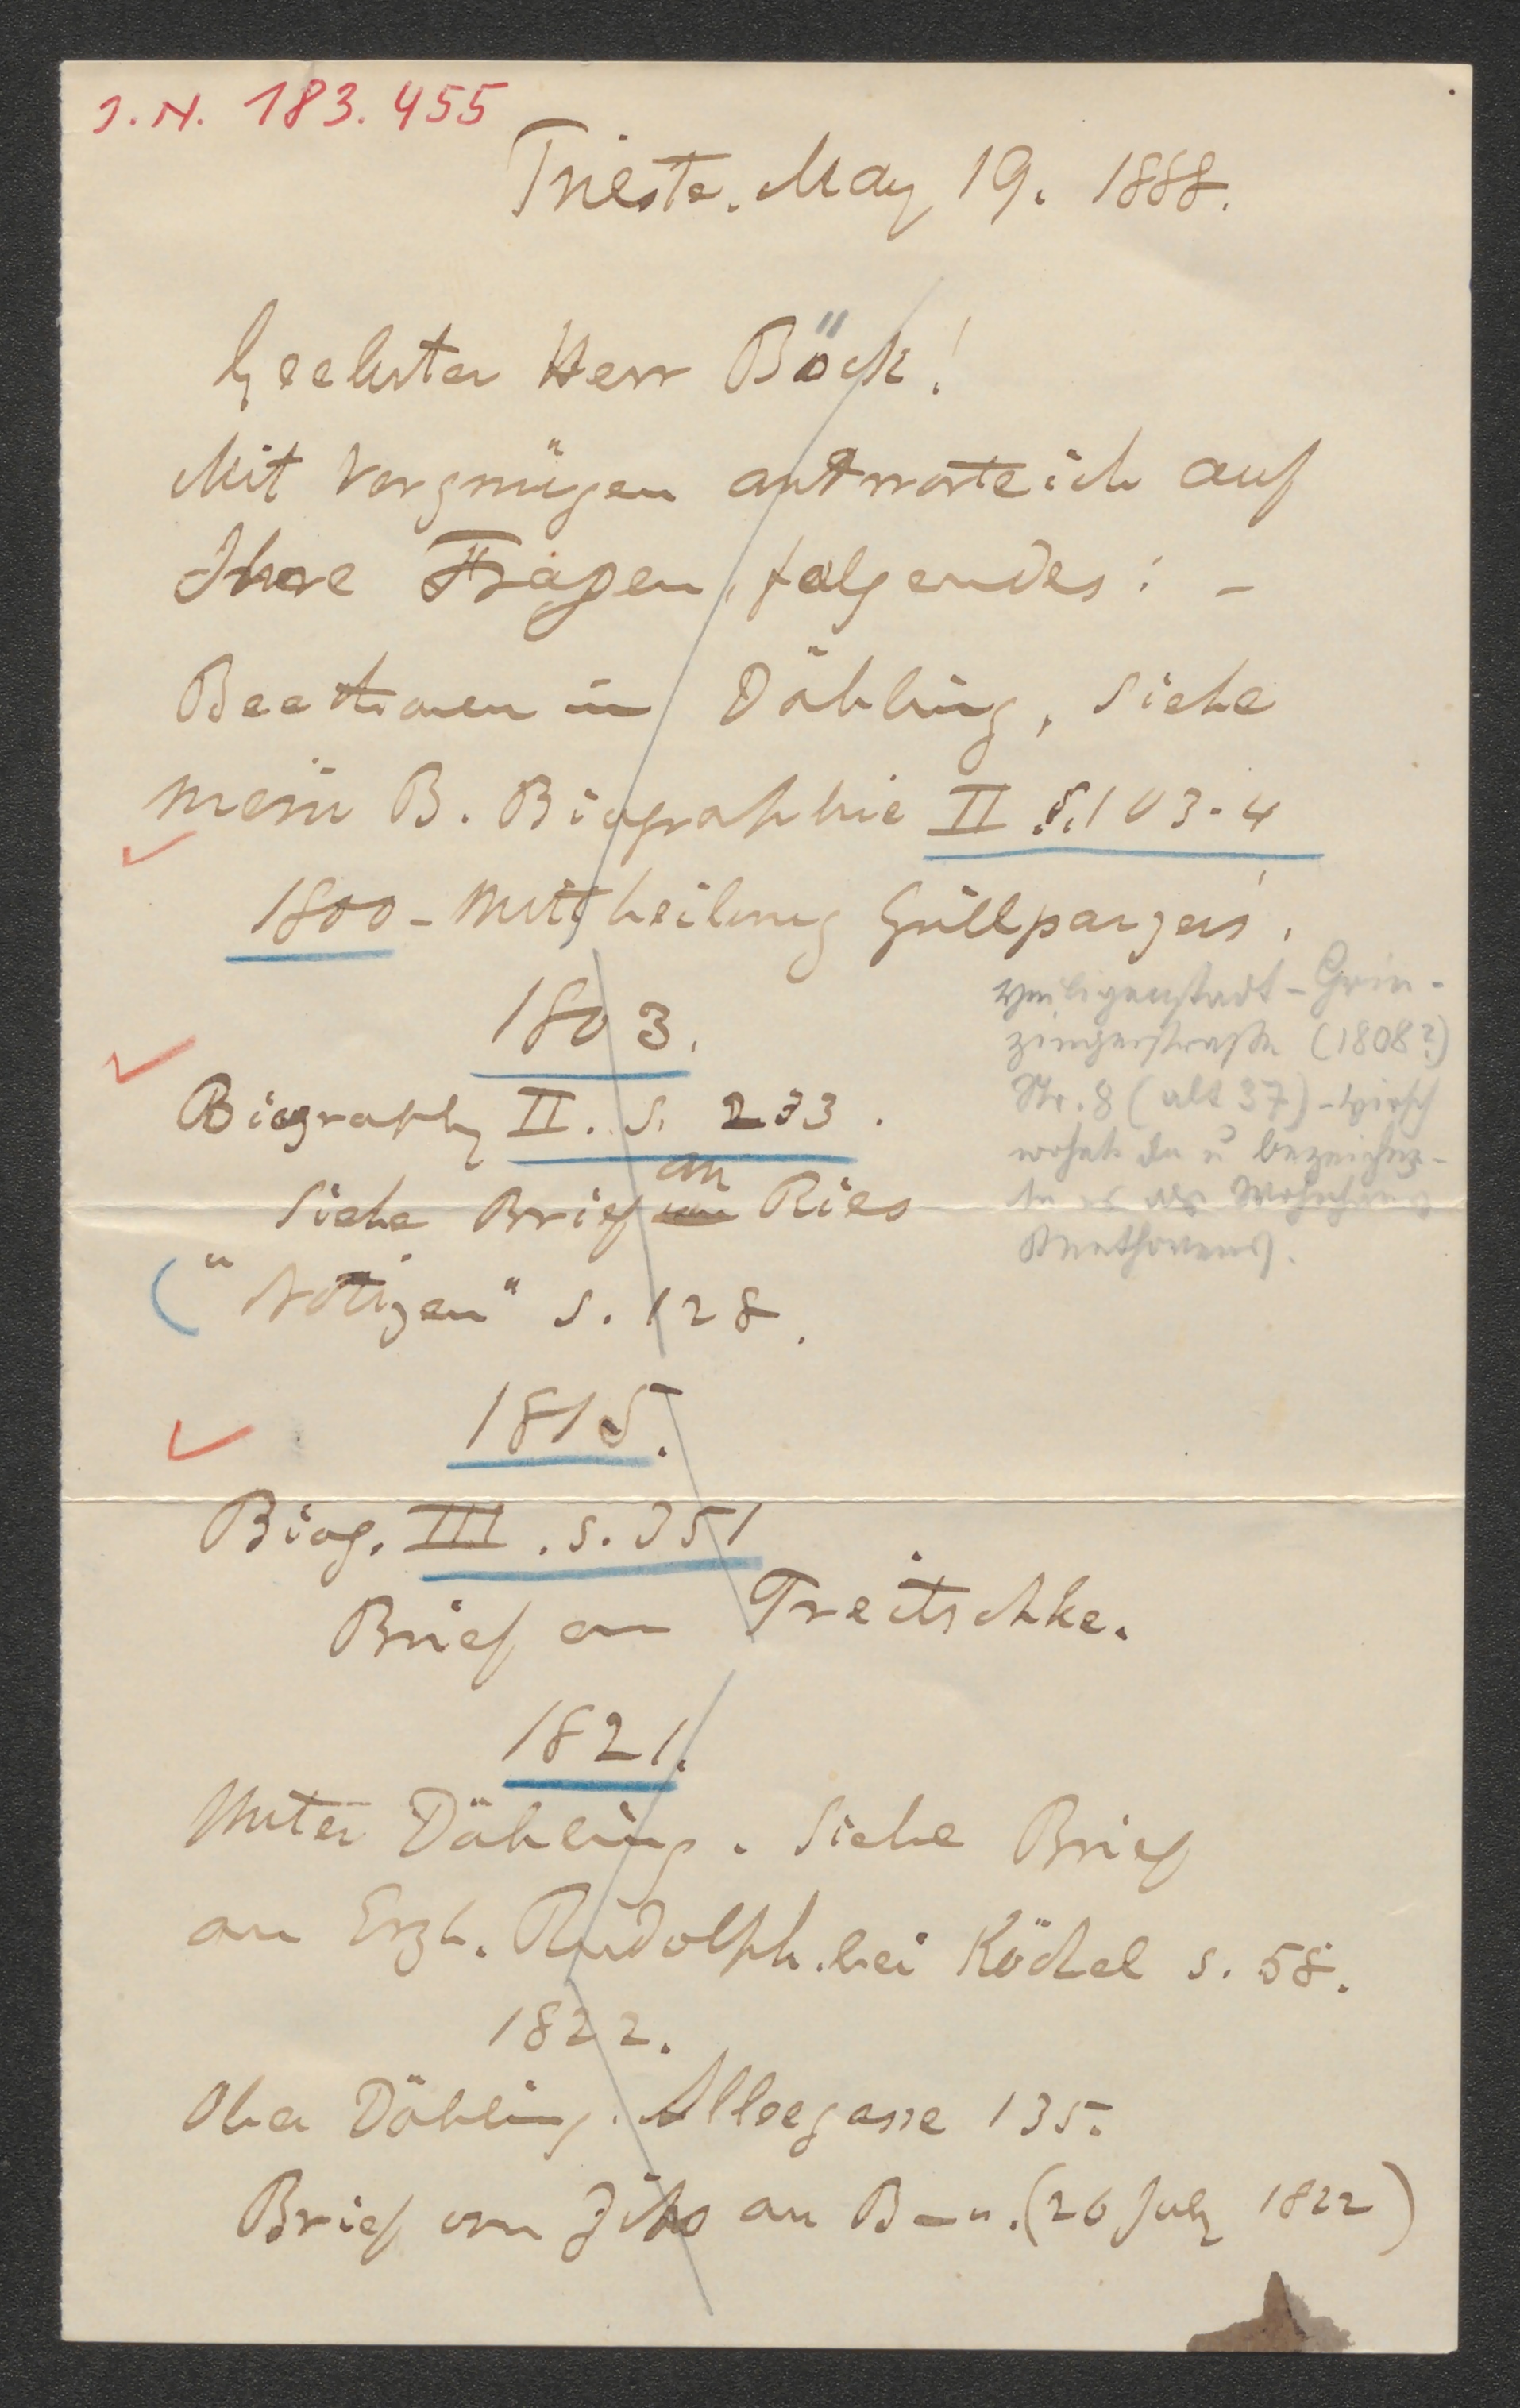 J.N. 183.455
Trieste. May 19. 1888.
Geehrter Herr Böck!
Mit Vergnügen antworte ich auf
Ihre Fragen, folgendes: –
Beethoven in Döbling, siehe
mein B. Biographie II S. 103-4
1800 – Mittheilung Grillparzers.
1803.
Biography II. S. 233.
Siehe Brief an Ries
"Notizen" S. 128.
Heiligenstadt – Grin-
zingerstraße (1808?)
Nr. 8 (alt 37) – Hirsch
wohnte da u bezeichne-
te es als Wohnhaus
Beethovens.
1815.
Biog. III. S. 351
Brief an Treitschke.
1821.
Unter Döbling. Siehe Brief
an Erzh. Rudolph. bei Köchel S. 58.
1822.
Ober Döbling. Alleegasse 135.
Brief von an B–n. (26 July 1822)